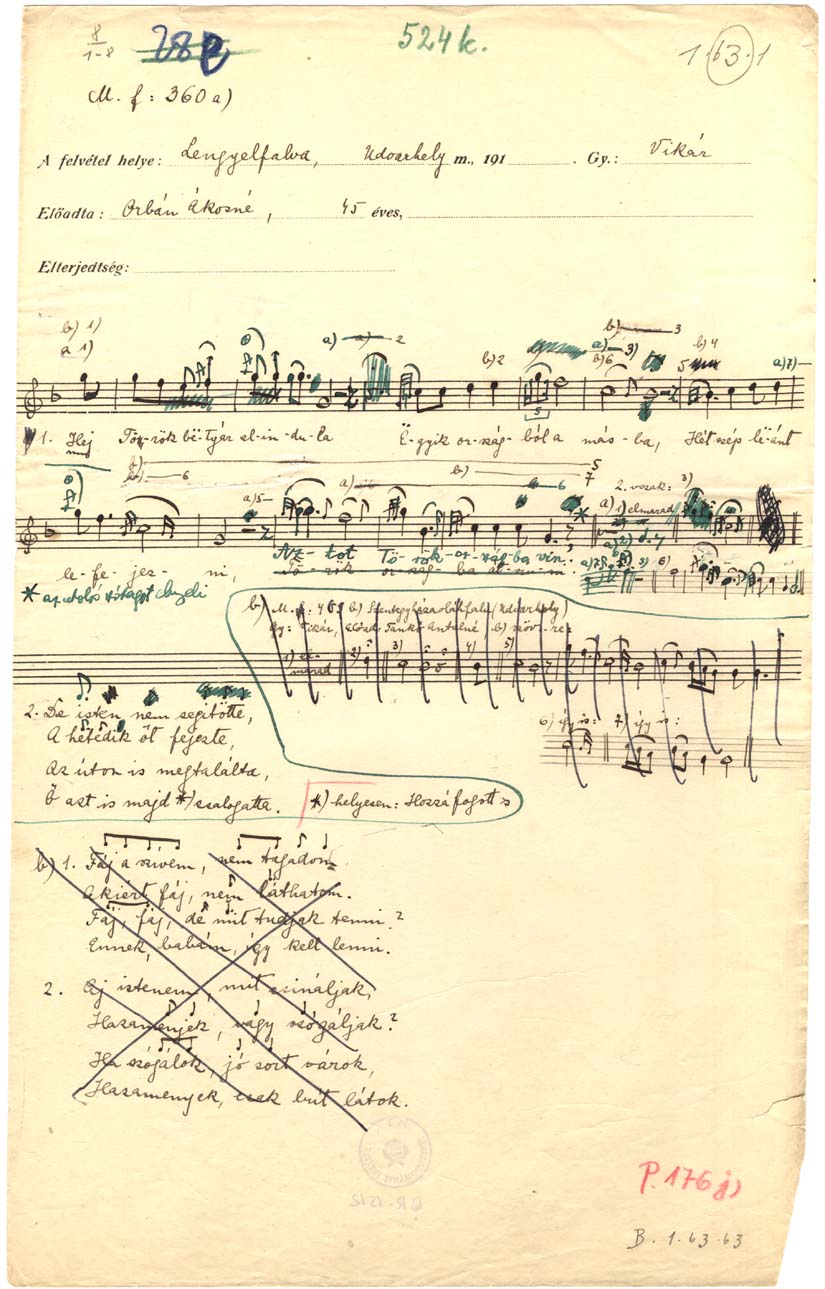 8
1-8
28
524 k.
1.63.1
M. f: 360 a)
A felvétel helye: Lengyelfalva, Udvarhely m., 191 . Gy.: Vikár
Előadta: Orbán Ákosné, 45 éves,
Elterjedtség:
b) 1)
a 1)
a) 2
b) 2
b) 3
a) 3)
b) 6
b) 4
5
a) 7)
1. Hej Tö-rök bë-tyár el-in-du-la Ë-gyik or-szág-ból a más-ba, Hét szép lë-ánt
b) 5
6
7
a) 5
a)
b)
6
2. vszak: 3)
a) 1) elmarad
a) 2)
le-fe-jez-ni, Az-tot Tö-rök-or-szág-ba vin.
* az utolsó szótagot elnyeli
b) M. f: 4 b) Szentegyházasoláhfalu (Udvarhely)
Gy: Vikár, Előad. Tankó Antalné b) szöv-re:
1) el-marad 2) 3) 4) 5)
2. De isten nem segitötte,
A hetedik őt fejezte,
Az úton is megtalálta,
Ő azt is majd *) csalogatta. *) helyesen: Hozzá fogott s
6) így is: 7) így is:
b) 1. Fáj a szivem, nem tagadom
Akiért fáj, nem láthatom.
Fáj, fáj, de mit tudjak tenni?
Ennek, babám, így kell lenni.
2. Aj istenem, mit csináljak,
Hazamenjek, vagy szógáljak?
Ha szógálok, jó sort várok,
Hazamenyek, csak bút látok.
P. 176 j)
B. 1.63.63